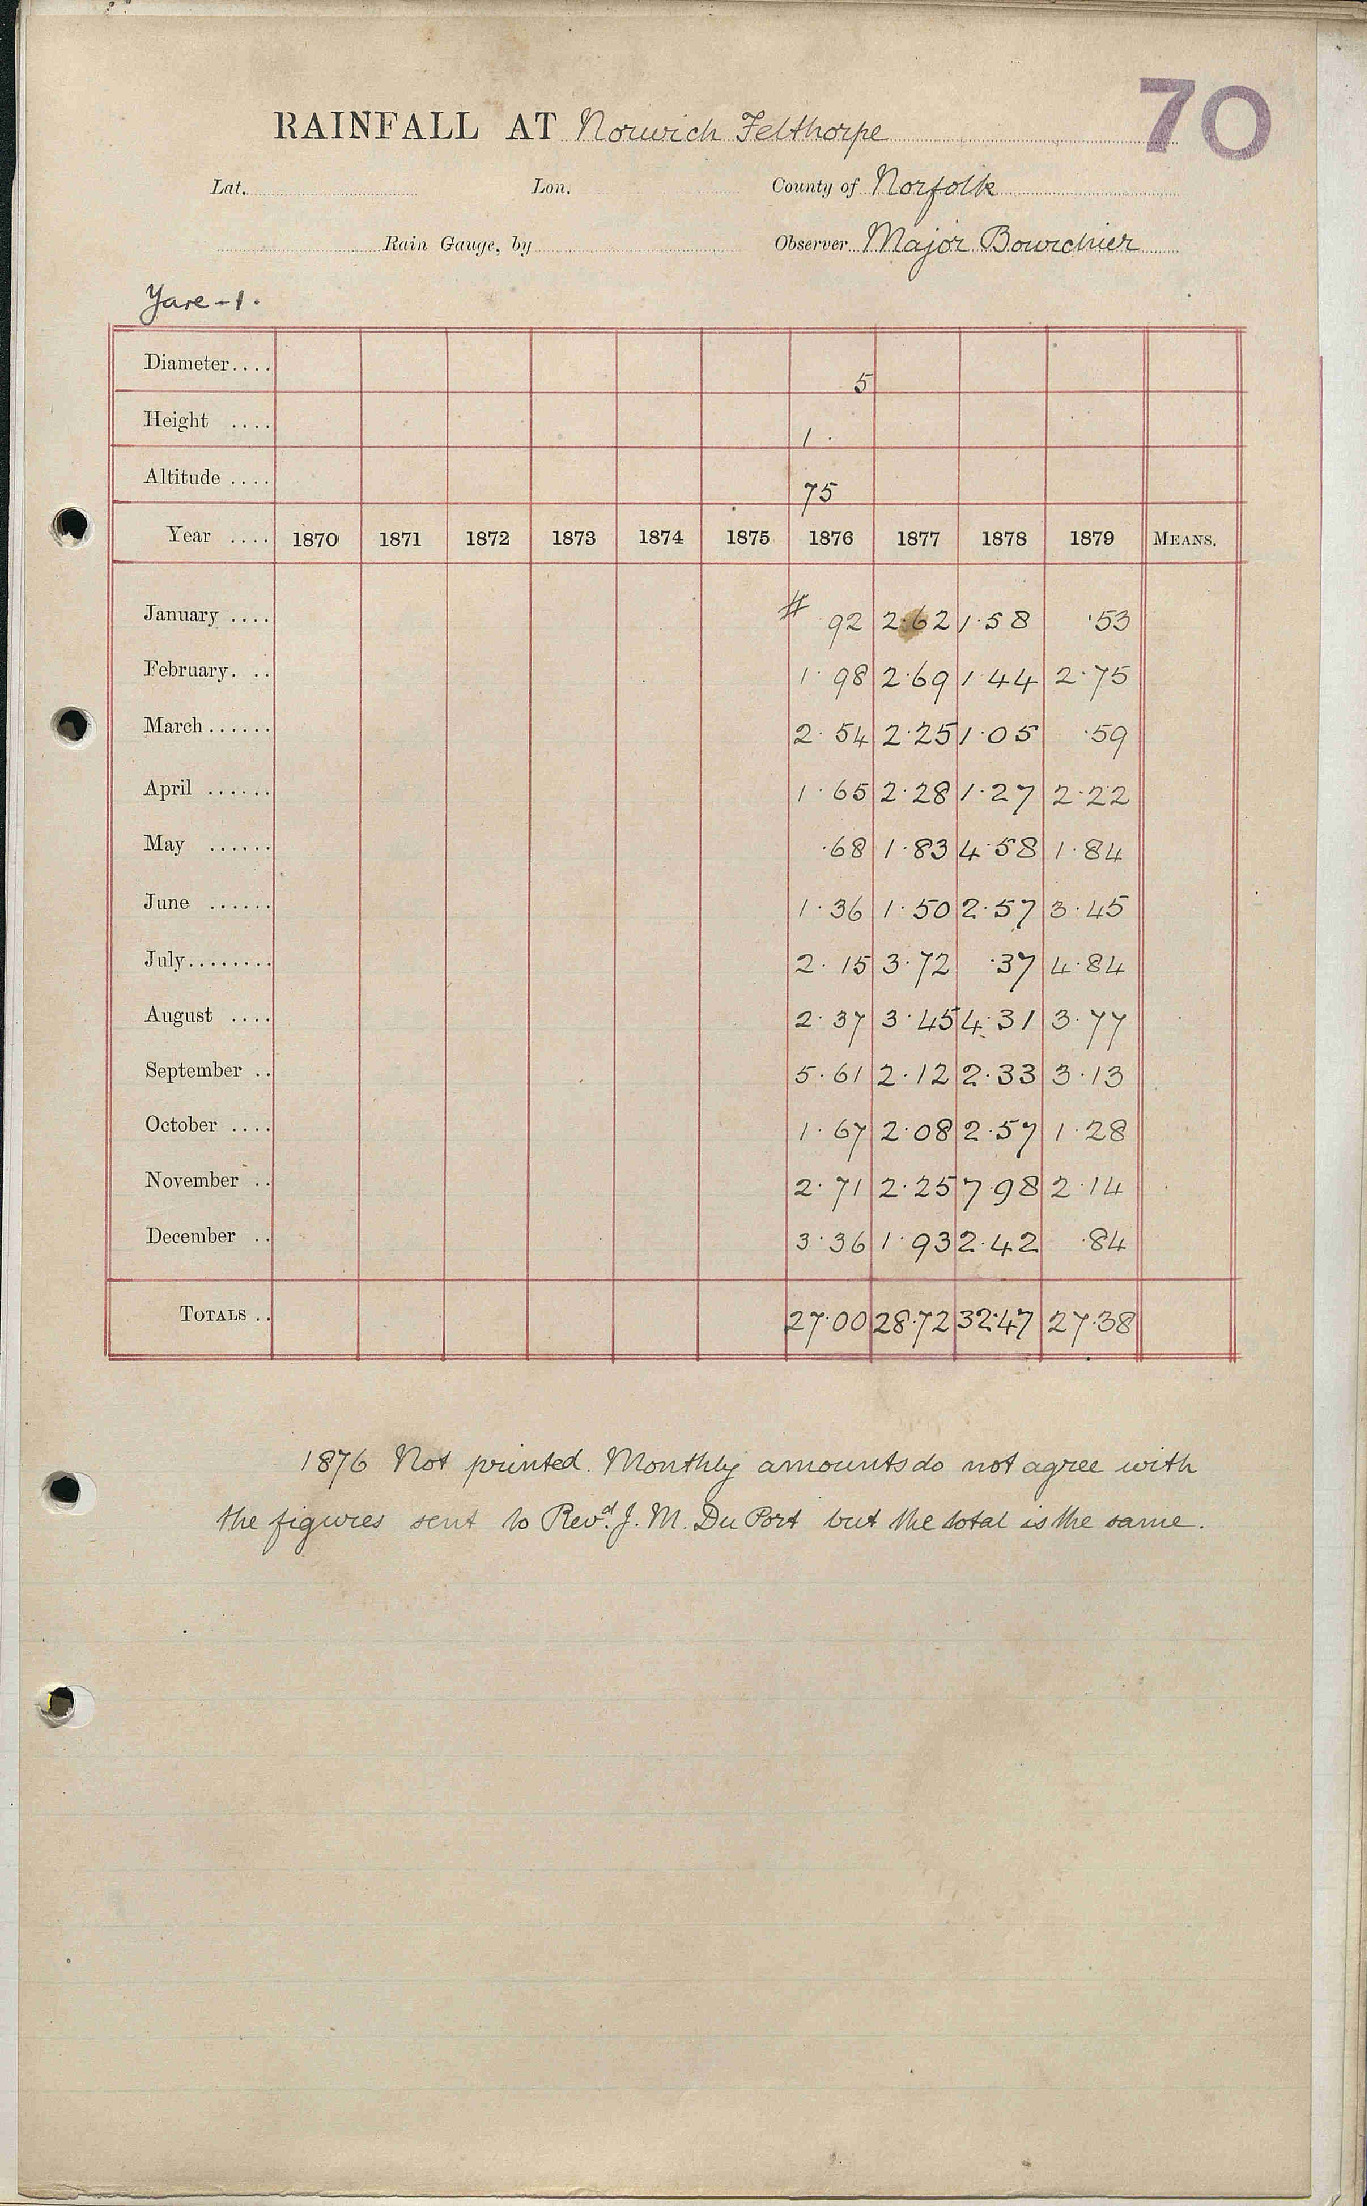 70
RAINFALL AT Norwich Felthorpe
Lat. Lon. County of Norfolk
Rain Gauge, by Observer Major Bourchier
Yare - 1.
Diameter.... 5
Height .... 1.
Altitude .... 75
Year .... 1870 1871 1872 1873 1874 1875 1876 1877 1878 1879 MEANS.
January .... # 92 2.62 1.58 .53
February. .. 1.98 2.69 1.44 2.75
March...... 2.54 2.25 1.05 .59
April ...... 1.65 2.28 1.27 2.22
May ...... .68 1.83 4.58 1.84
June ...... 1.36 1.50 2.57 3.45
July........ 2.15 3.72 .37 4.84
August .... 2.37 3.45 4.31 3.77
September .. 5.61 2.12 2.33 3.13
October .... 1.67 2.08 2.57 1.28
November .. 2.71 2.25 7.98 2.14
December .. 3.36 1.93 2.42 .84
TOTALS .. 27.00 28.72 32.47 27.38
1876 Not printed. Monthly amounts do not agree with
the figures sent to Revd. J. M. Du Port but the total is the same.